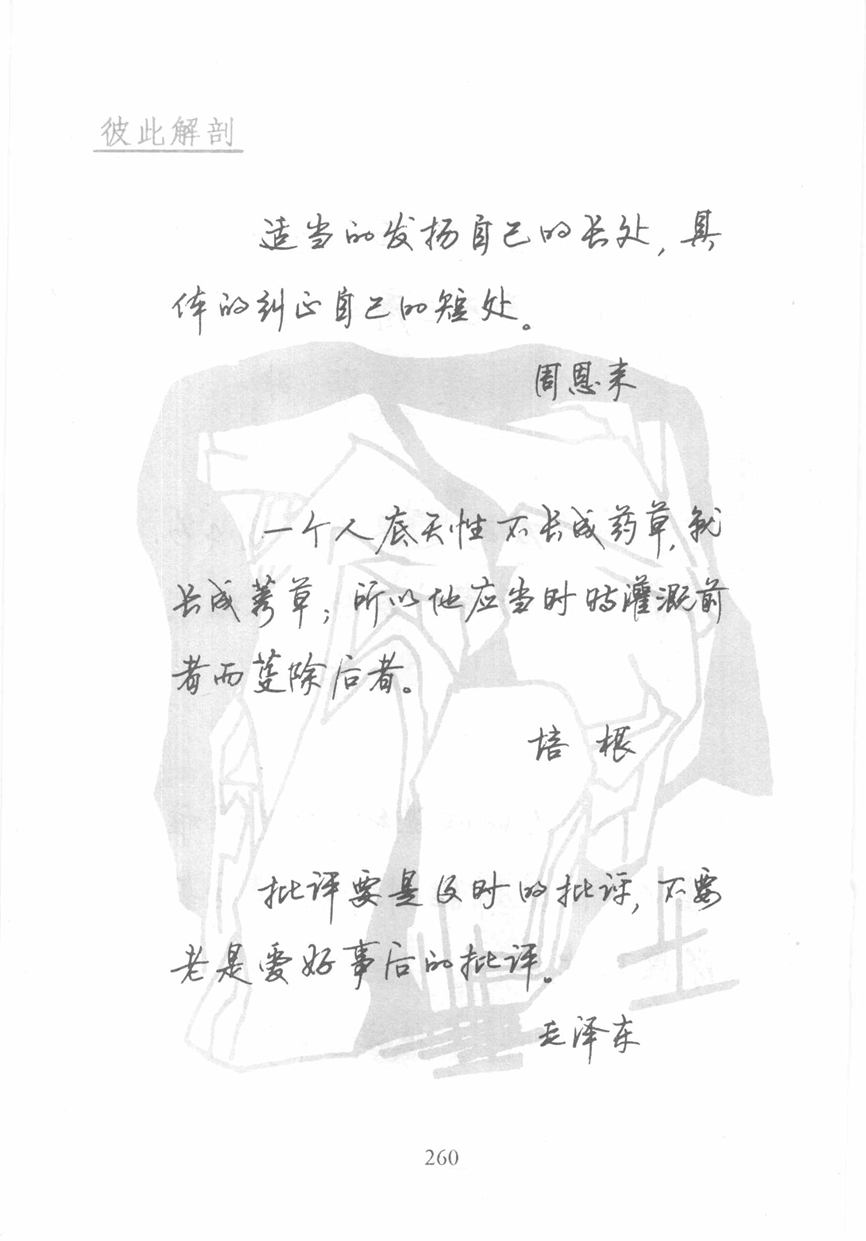 彼此解剖
适当的发扬自己的长处，具
体的纠正自己的短处。
周恩来
一个人底天性不长成药草，就
长成莠草；所以他应当时时灌溉前
者而芟除后者。
培 根
批评要是及时的批评，不要
老是爱好事后的批评。
毛泽东
260